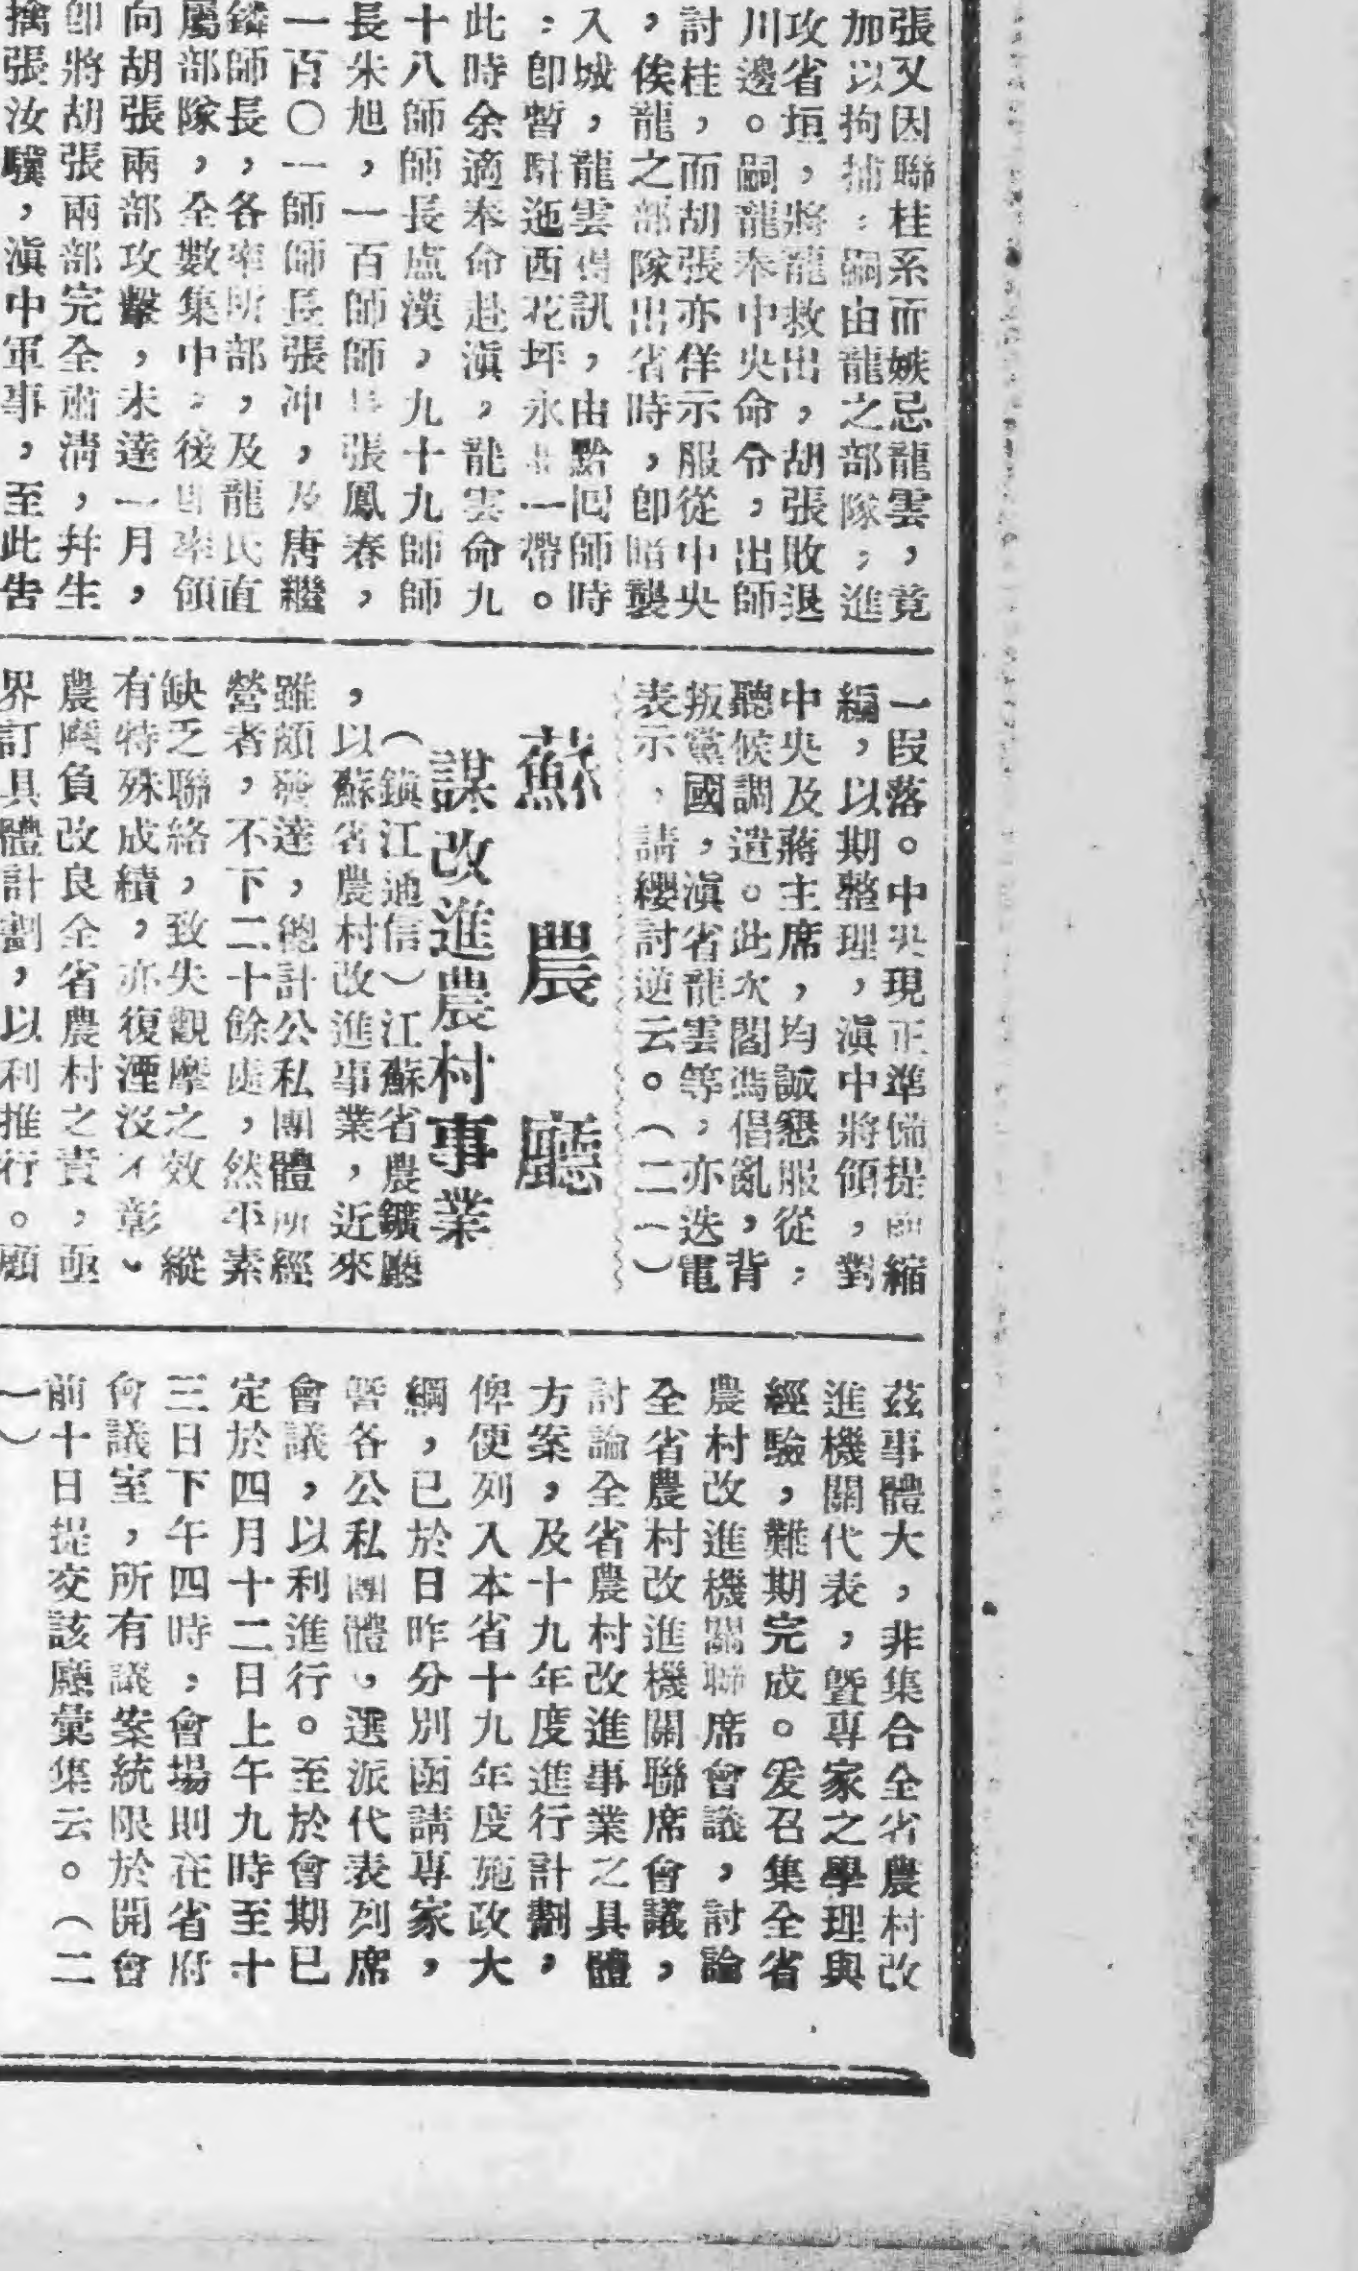 張又因聯桂系而嫉忌龍雲，竟
加以拘捕；嗣由龍之部隊，進
攻省垣，將龍救出，胡張敗退
川邊。嗣龍奉中央命令，出師
討桂，而胡張亦佯示服從中央
，俟龍之部隊出省時，即暗襲
入城，龍雲得訊，由黔回師時
，即暫駐迤西花坪永 一帶。
此時余適奉命赴滇，龍雲命九
十八師師長盧漢，九十九師師
長朱旭，一百師師長張鳳春，
一百〇一師師長張冲，及唐繼
鏻師長，各率所部，及龍氏直
屬部隊，全數集中，後 率領
向胡張兩部攻擊，未達一月，
即將胡張兩部完全肅清，幷生
擒張汝驥，滇中軍事，至此告
一段落。中央現正準備提前縮
編，以期整理，滇中將領，對
中央及蔣主席，均誠懇服從，
聽候調遣。此次閻馮倡亂，背
叛黨國，滇省龍雲等，亦迭電
表示，請纓討逆云。（二一）
蘇農廳
謀改進農村事業
（鎮江通信）江蘇省農鑛廳
，以蘇省農村改進事業，近來
雖頗發達，總計公私團體所經
營者，不下二十餘處，然平素
缺乏聯絡，致失觀摩之效，縱
有特殊成績，亦復湮沒不彰、
農廳負改良全省農村之責，亟
界訂具體計劃，以利推行。顧
茲事體大，非集合全省農村改
進機關代表，暨專家之學理與
經驗，難期完成。爰召集全省
農村改進機關聯席會議，討論
全省農村改進機關聯席會議，
討論全省農村改進事業之具體
方案，及十九年度進行計劃，
俾便列入本省十九年度施政大
綱，已於日昨分別函請專家，
暨各公私團體，選派代表列席
會議，以利進行。至於會期已
定於四月十二日上午九時至十
三日下午四時，會場則在省府
會議室，所有議案統限於開會
前十日提交該廳彙集云。（二
一）